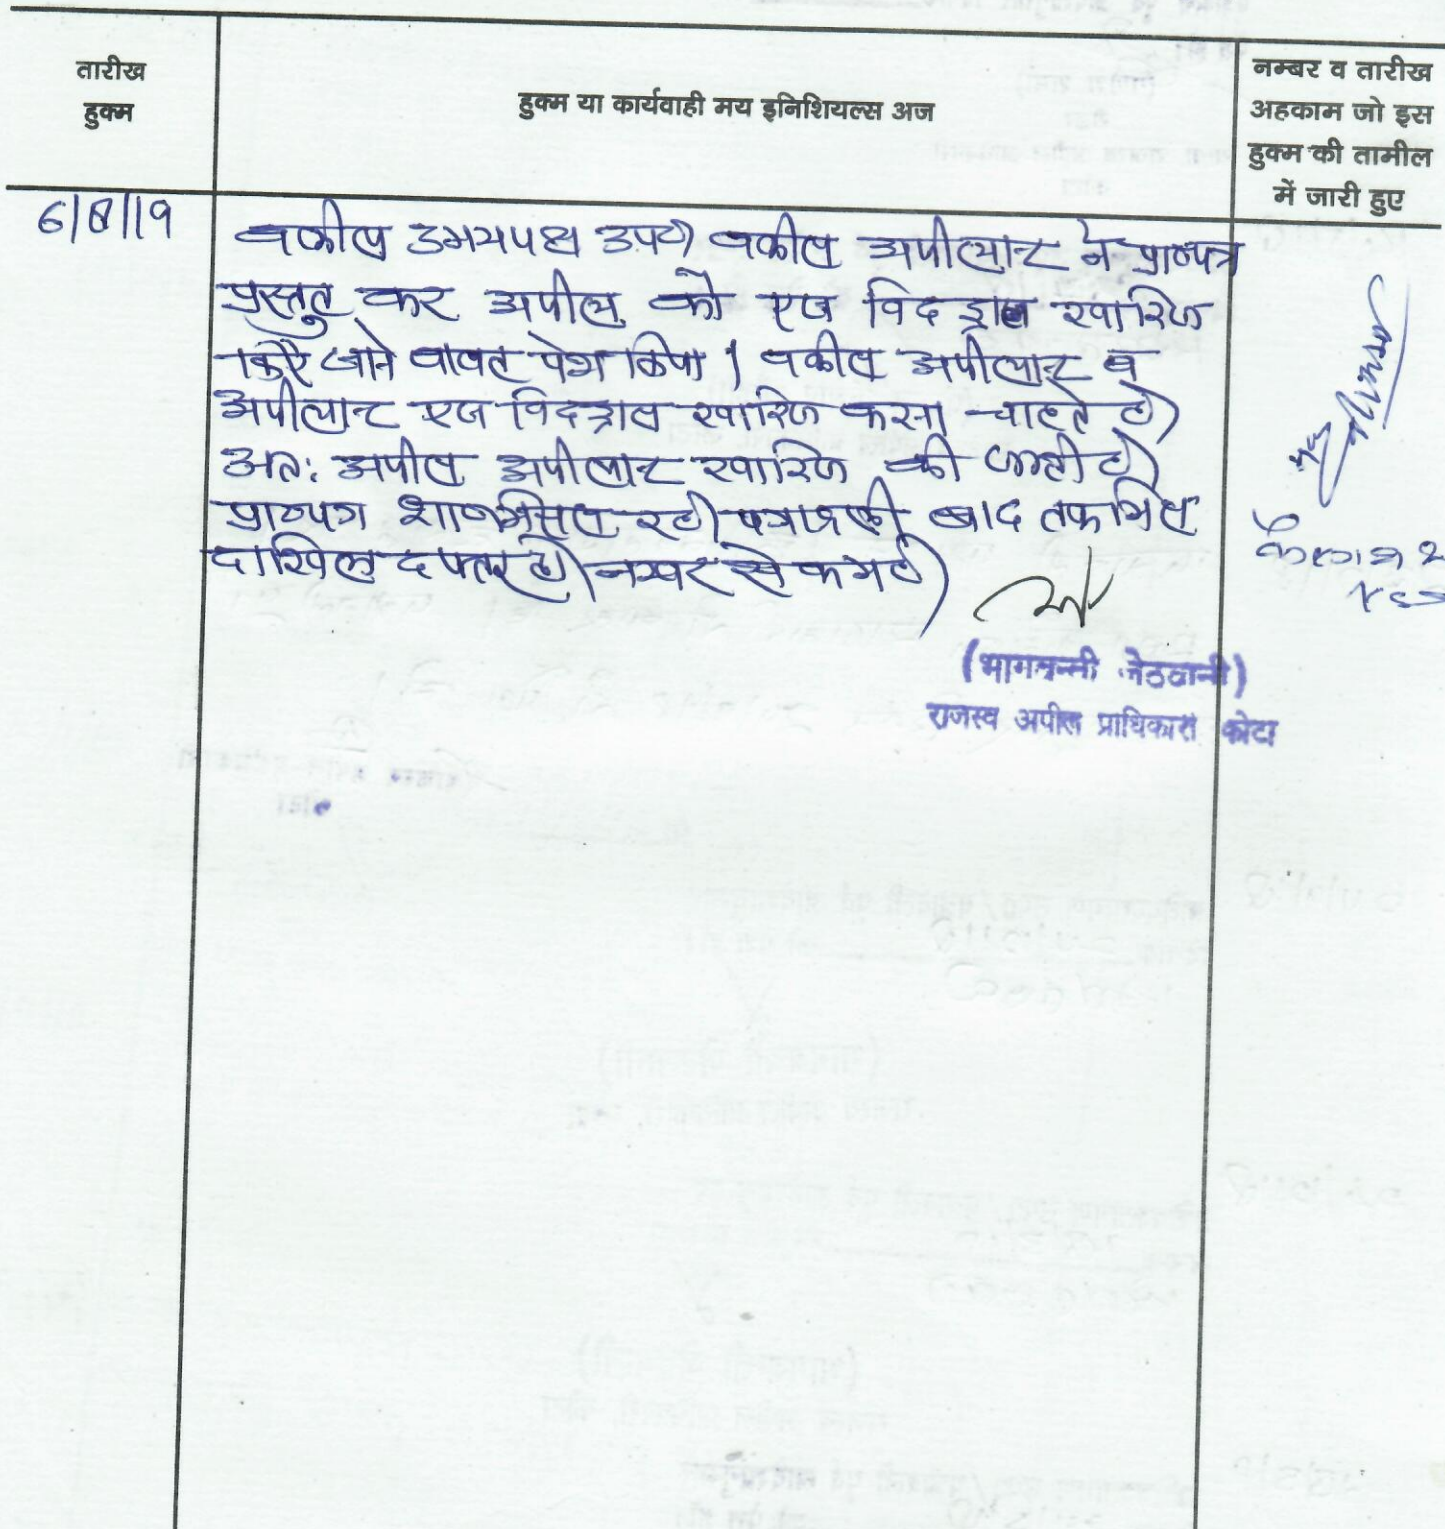 तारीख
हुक्म
हुक्म या कार्यवाही मय इनिशियल्स अज
नम्बर व तारीख
अहकाम जो इस
हुक्म की तामील
में जारी हुए
6/8/19
वकील उभयपक्ष उप० वकील अपीलान्ट ने प्रा०पत्र
प्रस्तुत कर अपील को एज विदड्राल खारिज
किऐ जाने बाबत पेश किया। वकील अपीलान्ट व
अपीलान्ट एज विदड्राल खारिज करना चाहते है।
अतः अपील अपीलान्ट खारिज की जाती है।
प्रा०पत्र शामिल रहे। पत्रावली बाद तकमिल
दाखिल दफ्तर हो। नम्बर से कम हो।
(भागवन्ती जेठवानी)
राजस्व अपील प्राधिकारी कोटा